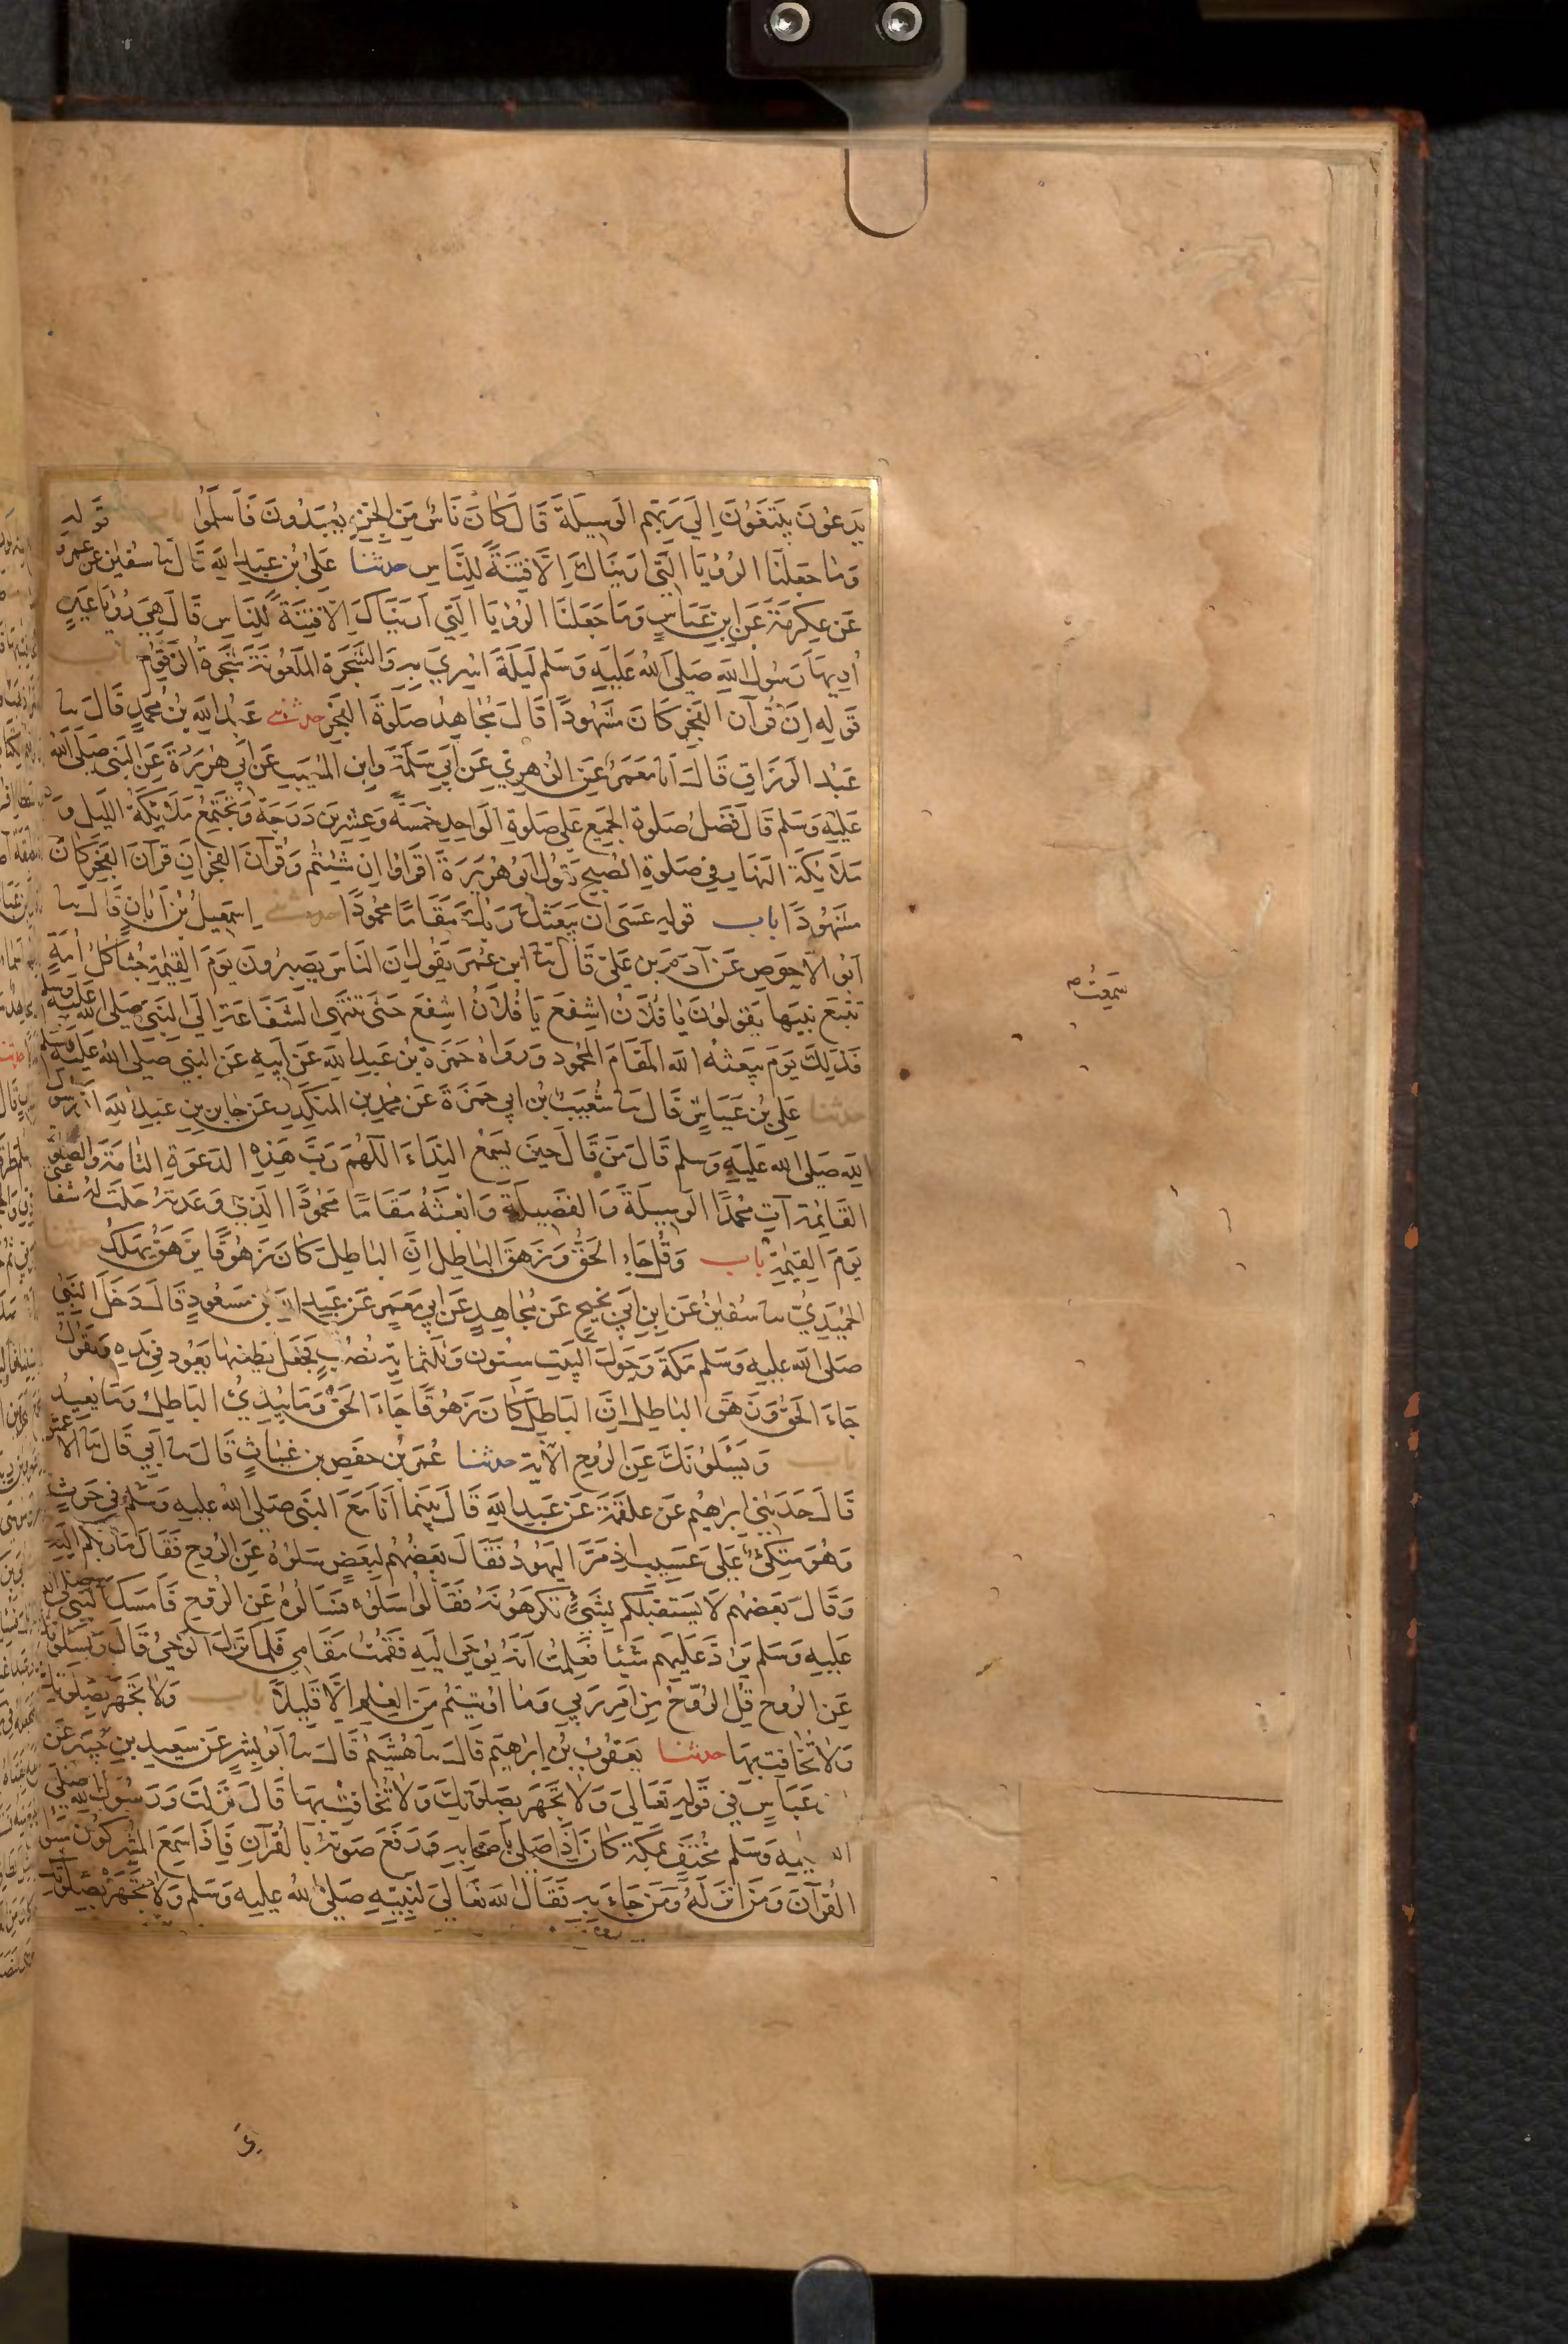 يَدعُونَ يَبتَغُونَ اِلَي رَبِّهِم الوسِيلَةَ قَالَ كَانَ نَاسٌ مِنَ الجِنِّ يُعبَدُونَ فَاَسلَمُوا باب قوله
وَمَا جَعَلنَا الرُؤيَا الَّتِي اَرَينَاكَ اِلَّا فِتنَةً لِلنَّاسِ حدثنا عَلِىُّ بْنُ عَبدِ اللهِ قَالَ سا سُفيٰن عن عمرو
عَن عِكرِمَةَ عَن ابنِ عَبّاسٍ وَمَا جَعَلنَا الرُؤيَا الَّتِي اَرَينَاكَ اِلّا فِتنَةً لِلنَاسِ قَالَ هِيَ رُؤيَا عَينٍ
اُرِيهَا رَسُولُ اللهِ صَلى اللهُ عَليهِ وَسَلم لَيلَةَ اُسْرِيَ بِهِ وَالشَجَرَةَ المَلعُونَةَ شَجَرَةُ الزَقُّومِ باب
قَولِهِ اِنَّ قُرآنَ الفَجرِ كَانَ مَشهُودًا قَالَ مُجاهِدٌ صَلوةَ الفَجرِ حدثنى عَبدُ اللهِ بْنُ مُحمدٍ قَالَ سا
عَبْدُ الرَزَاقِ قَالَ انا مَعمَرٌ عَنِ الزُهرِيِّ عَن اَبِي سَلَمَةَ وابنِ المُسَيبِ عَن اَبِي هُرَيرَةَ عَنِ النَبِي صَلى اللهُ
عَلَيهِ وَسَلم قَالَ فَضلُ صَلوةِ الجَمِيعِ عَلى صَلوةِ الوَاحِدِ خَمسَةٌ وَعِشرِينَ دَرَجَةً وَتَجتَمِعُ مَلائِكَةُ اللَيلِ وَ
مَلَائِكَةُ النَهَارِ فِي صَلوةِ الصُبحِ يَقُولُ اَبُو هُرَيرَةَ اقرَاوُا اِن شِئتُم وَقُرآنَ الفَجرِ اِنَّ قُرآنَ الفَجرِ كَانَ
مَشهُودًا باب قوله عَسَى اَن يَبعَثَكَ رَبُّكَ مَقَامًا مَحمُودًا حدثنى اِسمَعِيلُ بْنُ اَبَانٍ قَالَ سا
اَبُو الاَحوَصِ عَن آدَمَ بنِ عَلِيٍّ قَالَ سمعت ابنَ عُمَرَ يَقُولُ اِنَّ النَاسَ يَصِيرُونَ يَومَ القِيٰمَةِ جُثًا كُلُّ اُمَّةٍ
تَتبَعُ نَبِيَها يَقولُونَ يَا فُلَانُ اشفَع يَا فُلَانُ اشفَع حَتى تَنتَهِى الشَفَاعَةُ اِلَى النَبِيِّ صَلى الله عَليهِ وسلم
فَذٰلِكَ يَومَ يَبعَثُهُ اللهُ المَقَامَ المَحمُودَ وَرَوَاهُ حَمزَةُ بْنُ عَبدِ اللهِ عَن اَبِيهِ عَنِ النَبِيِّ صَلى اللهُ عَليهِ وسلم
حدثنا عَلِىُّ بْنُ عَيَّاشٍ قَالَ سا شُعَيبُ بْنُ اَبِي حَمزَةَ عَن مُحمدِ بنِ المُنكَدِرِ عَن جَابِرِ بنِ عَبدِ اللهِ اَنَّ رَسُولَ
اللهِ صَلى اللهُ عَليهِ وَسلم قَالَ مَن قَالَ حِينَ يَسمَعُ النِدَاءَ اَللّهُمَّ رَبَّ هَذِهِ الدَعوَةِ التَامَّةِ وَالصَلوةِ
القَائِمَةِ آتِ مُحمَّدًا الوَسِيلَةَ وَالفَضِيلَةَ وَابعَثهُ مَقَامًا مَحمُودًا الَّذِي وَعَدتَهُ حَلَت لَهُ شَفَاعتى
يَومَ القِيٰمَةِ باب وَقُل جَاءَ الحَقُّ وَزَهَقَ البَاطِلُ اِنَّ البَاطِلَ كَانَ زَهُوقًا يَزهَقُ يَهلِكُ حدثنا
الحُمَيدِيُّ سا سُفيٰنُ عَنِ ابنِ اَبِي نَجِيحٍ عَن مُجَاهِدٍ عَن اَبِي مَعمَرٍ عَن عَبدِ اللهِ بنِ مَسعُودٍ قَالَ دَخَلَ النَبِيُّ
صَلى الله عليهِ وَسَلم مَكَةَ وَحَولَ البَيتِ سِتُّونَ وَثَلٰثمَايَةِ نُصُبٍ فَجَعَلَ يَطعَنُهَا بِعُودٍ فِي يَدِهِ وَيَقُولُ
جَاءَ الحَقُّ وَزَهَقَ البَاطِلُ اِنَّ البَاطِلَ كَانَ زَهُوقًا جَاءَ الحَقُّ وَمَا يُبدِئُ البَاطِلُ وَمَا يُعِيدُ
باب وَيَسئَلُونَكَ عَنِ الرُوحِ الآيَة حدثنا عُمَرُ بْنُ حَفصِ بنِ غِيَاثٍ قَالَ سا اَبِي قَالَ سا الاعمش
قَالَ حَدَثَنِي اِبرٰهِيمُ عَن عَلقَمَةَ عَن عَبدِ اللهِ قَالَ بَينَمَا اَنَا مَعَ النَبِي صَلى اللهُ عليهِ وَسَلم فِي حَرثٍ
وَهُوَ مُتَّكِئٌ عَلَى عَسِيبٍ اِذ مَرَّ اليَهُودُ فَقَالَ بَعضُهُم لِبَعضٍ سَلُوهُ عَنِ الرُوحِ فَقَالَ مَا رَابَكُم اِلَيهِ
وَقَالَ بَعضُهُم لَا يَستَقبِلُكُم بِشَيءٍ تَكرَهُونَهُ فَقَالُوا سَلُوهُ فَسَالُوهُ عَنِ الرُوحِ فَاَمسَكَ النَبِي صلى الله
عَليهِ وَسَلم فلم يَرُدَّ عَلَيهِم شَيئًا فَعَلِمتُ اَنَّهُ يُوحَى اِلَيهِ فَقُمتُ مَقَامِي فَلَمَا نَزَلَ الوَحيُ قَالَ وَيَسئَلونك
عَنِ الرُوحِ قُلِ الرُوحُ مِن اَمرِ رَبِّي وَمَا اُوتِيتُم مِنَ العِلمِ اِلَّا قَلِيلًا باب وَلَا تَجهَر بِصَلَوتِكَ
وَلَا تُخَافِت بِهَا حدثنا يَعقُوبُ بْنُ اِبرٰهِيمَ قَالَ سا هُشَيمٌ قَالَ سا اَبُو بِشرٍ عَن سَعِيدِ بنِ جُبَيرٍ عَن
عَبَّاسٍ فِي قَولِهِ تَعَالَى وَلَا تَجهَر بِصَلَوتِكَ وَلَا تُخَافِت بِهَا قَالَ نَزَلَت وَرَسُولُ اللهِ صلى
الله عليهِ وَسَلم مُختَفٍ بِمَكَةَ كَانَ اِذَا صَلى بِاَصحَابِهِ رَفَعَ صَوتَهُ بِالقُرآنِ فَاِذَا سَمِعَ المُشرِكُونَ سَبُّوا
القُرآنَ وَمَن اَنزَلَهُ وَمَن جَاءَ بِهِ فَقَالَ اللهُ تَعَالَى لِنَبِيِّهِ صَلى اللهُ عليهِ وَسَلم وَلَا تَجهَر بِصَلَوتِكَ
سَمِعتُ صح